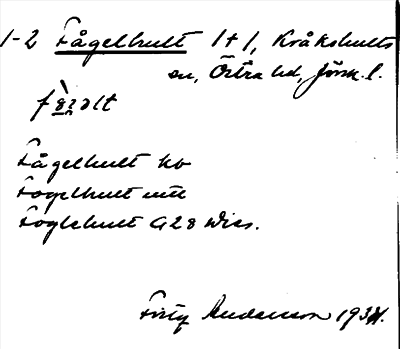 1-2 Fågelhult 1+1, Kråkshults
sn, Östra hd, Jönk. l.
Fågelhult kb
Fogelhult
Foglehult G28 Wies.
Fritz Andersson 193